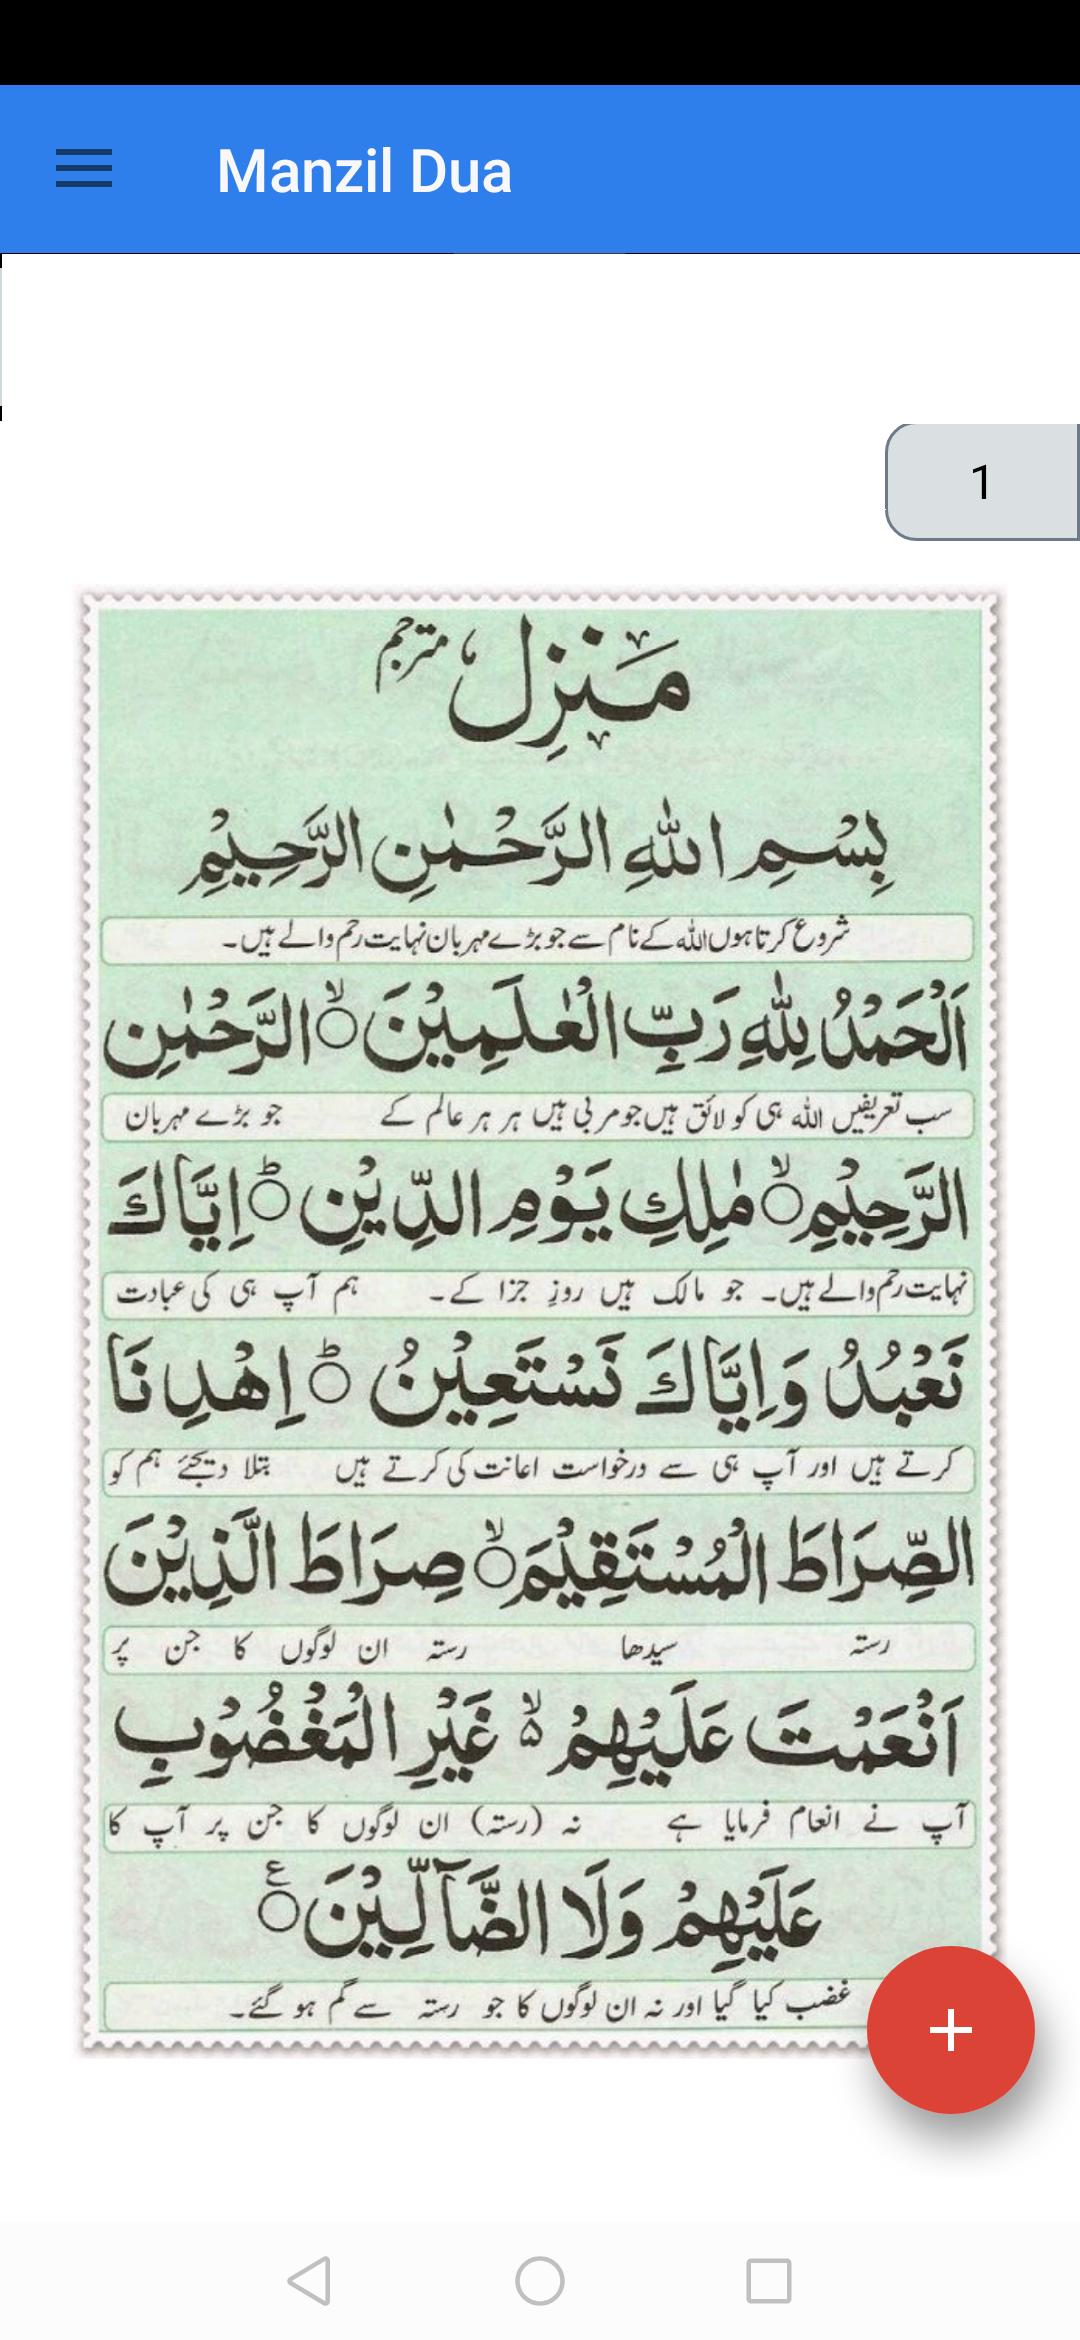 Manzil Dua
1
مَنْزِل مترجم
بِسْمِ اللهِ الرَّحْمٰنِ الرَّحِيْمِ
شروع کرتا ہوں اللہ کے نام سے جو بڑے مہربان نہایت رحم والے ہیں۔
اَلْحَمْدُ لِلّٰهِ رَبِّ الْعٰلَمِيْنَ ۙ○ الرَّحْمٰنِ
سب تعریفیں اللہ ہی کو لائق ہیں جو مربی ہیں ہر ہر عالم کے جو بڑے مہربان
الرَّحِيْمِ ۙ○ مٰلِكِ يَوْمِ الدِّيْنِ ؕ○ اِيَّاكَ
نہایت رحم والے ہیں۔ جو مالک ہیں روزِ جزا کے۔ ہم آپ ہی کی عبادت
نَعْبُدُ وَاِيَّاكَ نَسْتَعِيْنُ ؕ○ اِهْدِنَا
کرتے ہیں اور آپ ہی سے درخواست اعانت کی کرتے ہیں بتلا دیجئے ہم کو
الصِّرَاطَ الْمُسْتَقِيْمَ ۙ○ صِرَاطَ الَّذِيْنَ
رستہ سیدھا رستہ ان لوگوں کا جن پر
اَنْعَمْتَ عَلَيْهِمْ ۙ۵ غَيْرِ الْمَغْضُوْبِ
آپ نے انعام فرمایا ہے نہ (رستہ) ان لوگوں کا جن پر آپ کا
عَلَيْهِمْ وَلَا الضَّآلِّيْنَ ○ع
غضب کیا گیا اور نہ ان لوگوں کا جو رستہ سے گم ہو گئے۔